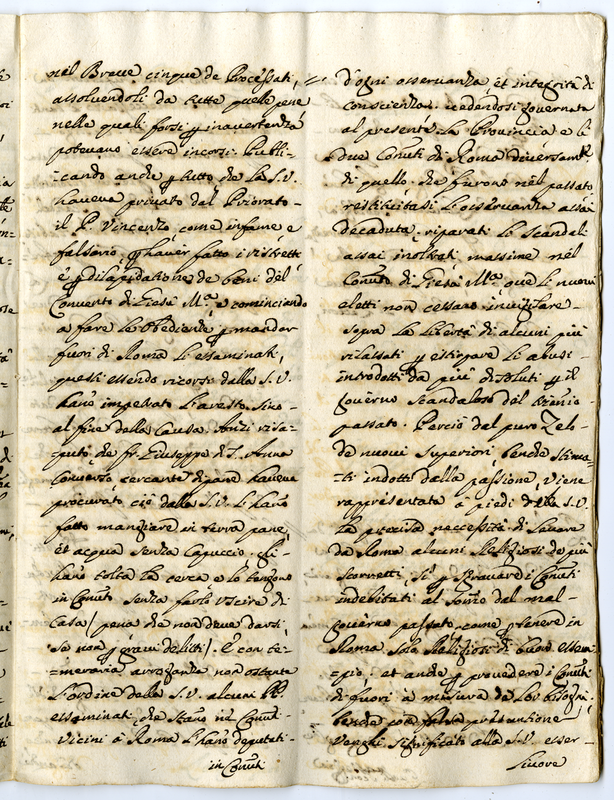 nel Breve cinque de Processati,
assolvendoli da tutte quelle pene
nelle quali forsi p inavertenza
potevano essere incorsi. Publi-
-cando anche p tutto che la S.V.
haveva privato dal Priorato
il P. Vincenzo come infame e
falsario, p haver fatto i
e p dilapidatione de beni del
Convento di Giesù M.ª, e cominciando
a fare le Obedienze p mandar
fuori di Roma li essaminati,
questi essendo ricorsi dalla S.V.
hanno impetrato l'aresto sino
al fine della Causa. Anzi risa-
puto che fr. Giuseppe di S. Anna
Converso cercante di pane haveva
procurato ciò dalla S.V. l'hano
fatto mangiare in terra pane,
et acqua senza Capuccio, gli
hano tolta la cerca e lo tengono
in Conv.to senza farlo uscire di
Casa (pena che non deve darsi,
se non p gravi delitti). E con te-
-meraria arroganza non ostante
l'ordine della S.V. alcuni PP.
essaminati, che stano nel Conv.
Vicini à Roma l'hano deputati
in Conv.ti
d'ogni osservanza, et integrità di
conscienza: vedendosi governata
al presente la Provincia e li
due Conv.ti di Roma diversam.te
di quello che furono nel passato
restituitasi l'osservanza assai
decaduta, riparati li scandali
assai inoltrati, massime nel
Conv.to di Giesù M.ª que li nuovi
eletti non cessano invigilare
sopra la libertà di alcuni più
rilassati p estirpare li abusi
introdotti da più disoluti p il
governo scandaloso del trienio
passato. Perciò dal puro Zelo
de nuovi Superiori, benche stima-
-ti indotti dalla passione, viene
rappresentata à piedi della S.V.
la precisa neccessità di levare
da Roma alcuni Religiosi de più
scorretti, sì p sgravare i Conv.ti
indebitati al som̃o dal mal
governo passato, come p tenere in
Roma solo Religiosi di buon essem-
-pio: et anche p provedere i Conv.ti
di fuori à misura de lor bisogni,
benche con falsa
venghi significati alla S.V. esser
livore